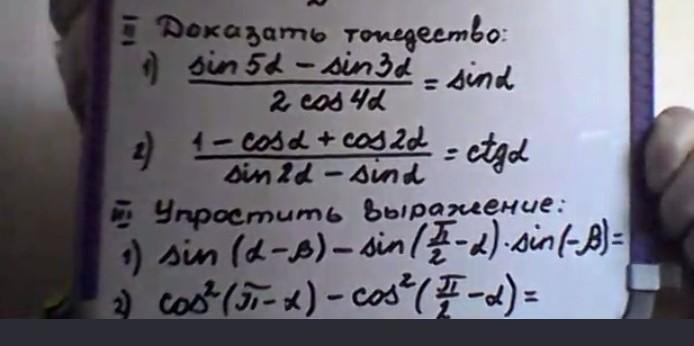 II Доказать тождество:
1) (sin5α − sin3α)/(2 cos4α) = sinα
2) (1 − cosα + cos2α)/(sin2α − sinα) = ctgα
III Упростить выражение:
1) sin(α−β) − sin(π/2 − α)·sin(−β) =
2) cos²(π−α) − cos²(π/2 − α) =